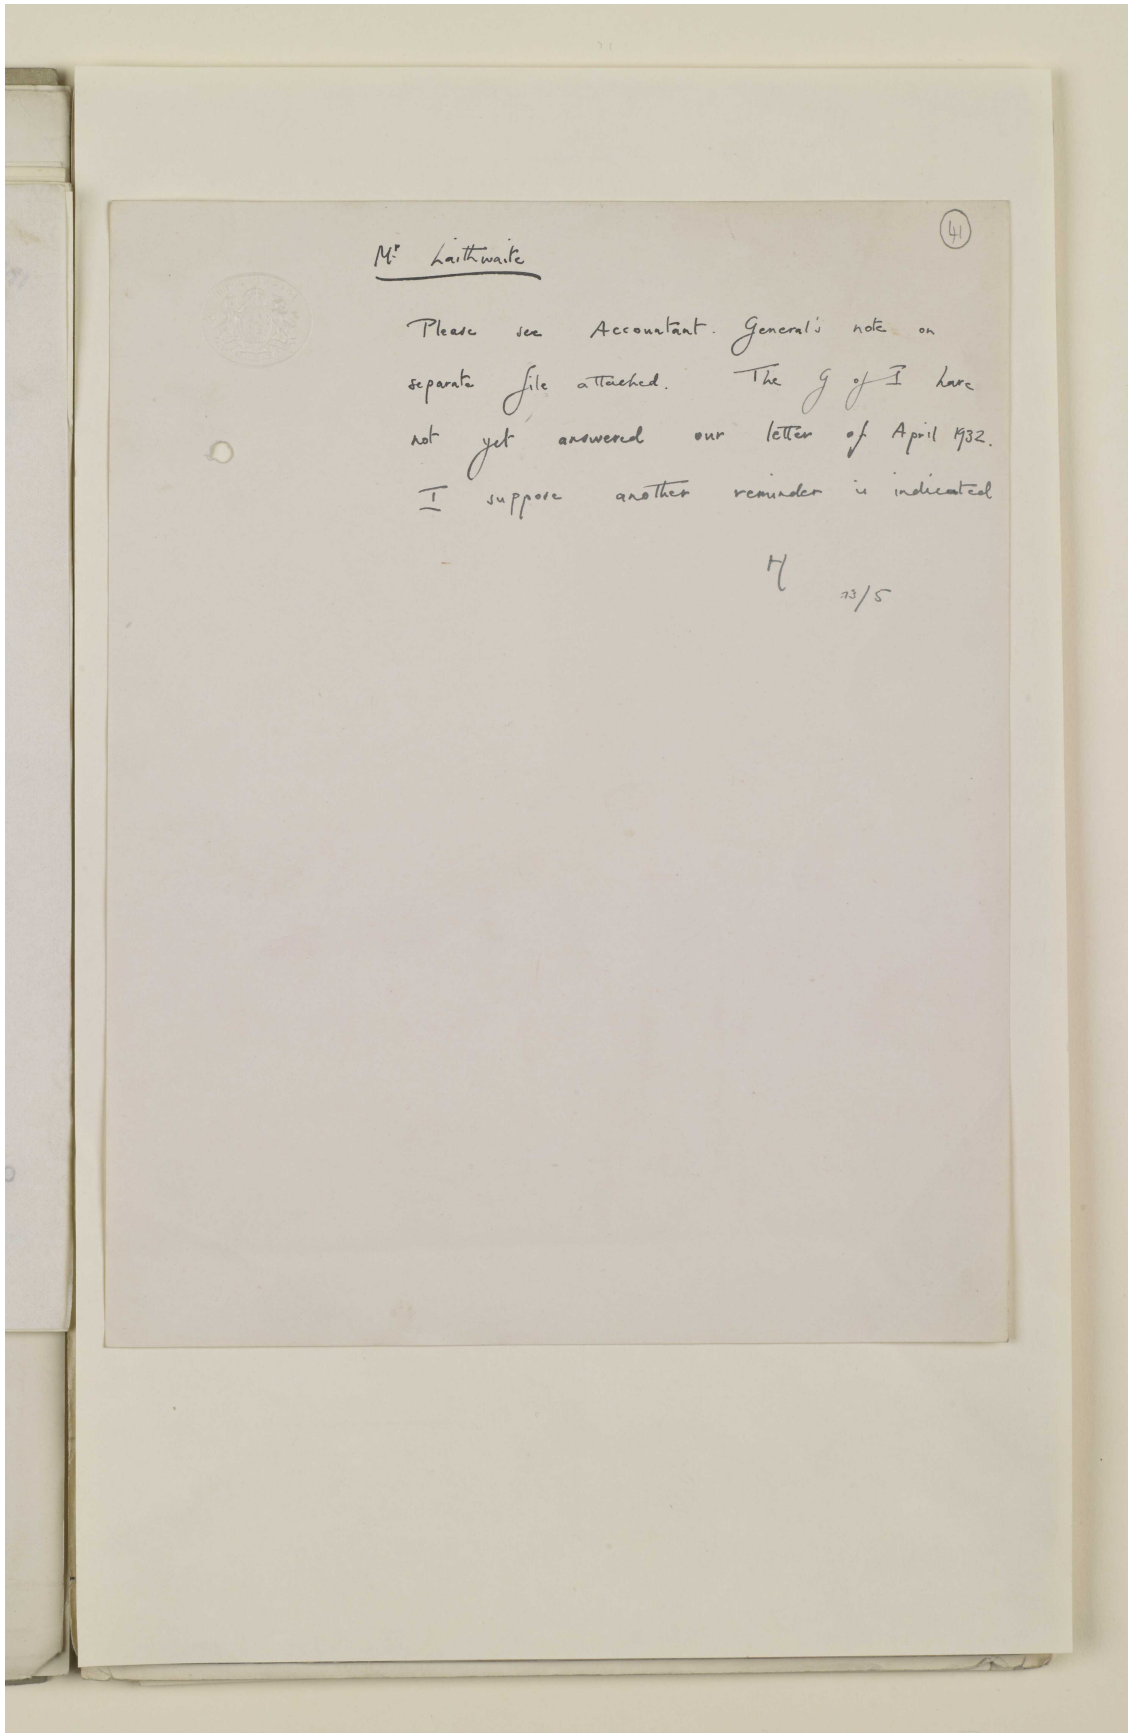 41
Mr Laithwaite
Please see Accountant. General's note on
separate file attached. The G of I have
not yet answered our letter of April 1932.
I suppose another reminder is indicated
H
23/5